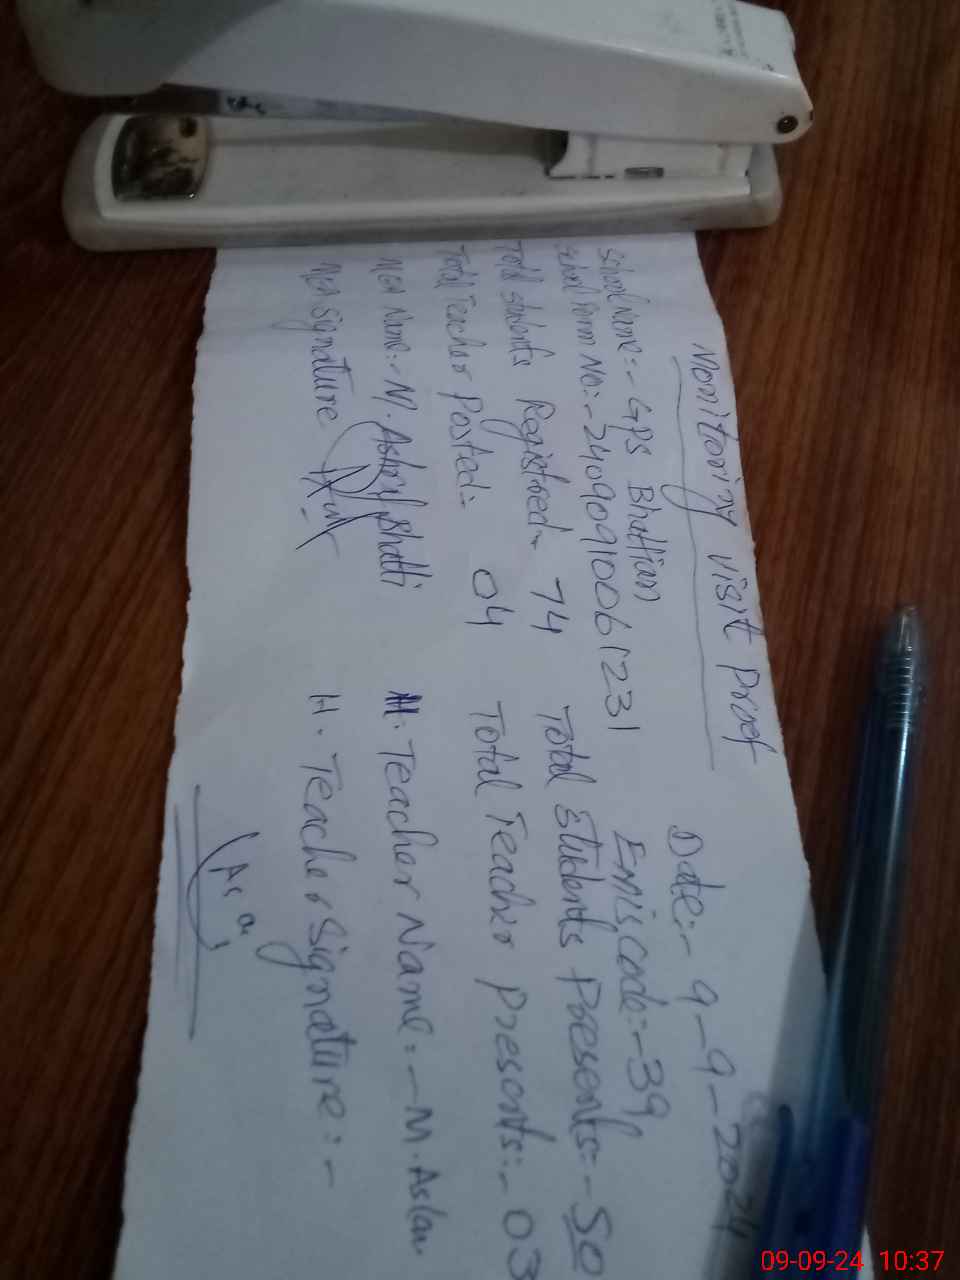 Monitoring visit Proof
Date:- 9-9-2024
School Name:- GPS Bhattian
School Form No:- 24090910061231 Emis Code:-39
Total students Registred- 74 Total Students Presents:- 50
Total Teacher Posted:- 04 Total Teacher Presents:- 03
MEA Name:- M. Ashraf Bhatti H. Teacher Name:- M. Aslam
MEA Signature H. Teacher Signature:-
09-09-24 10:37